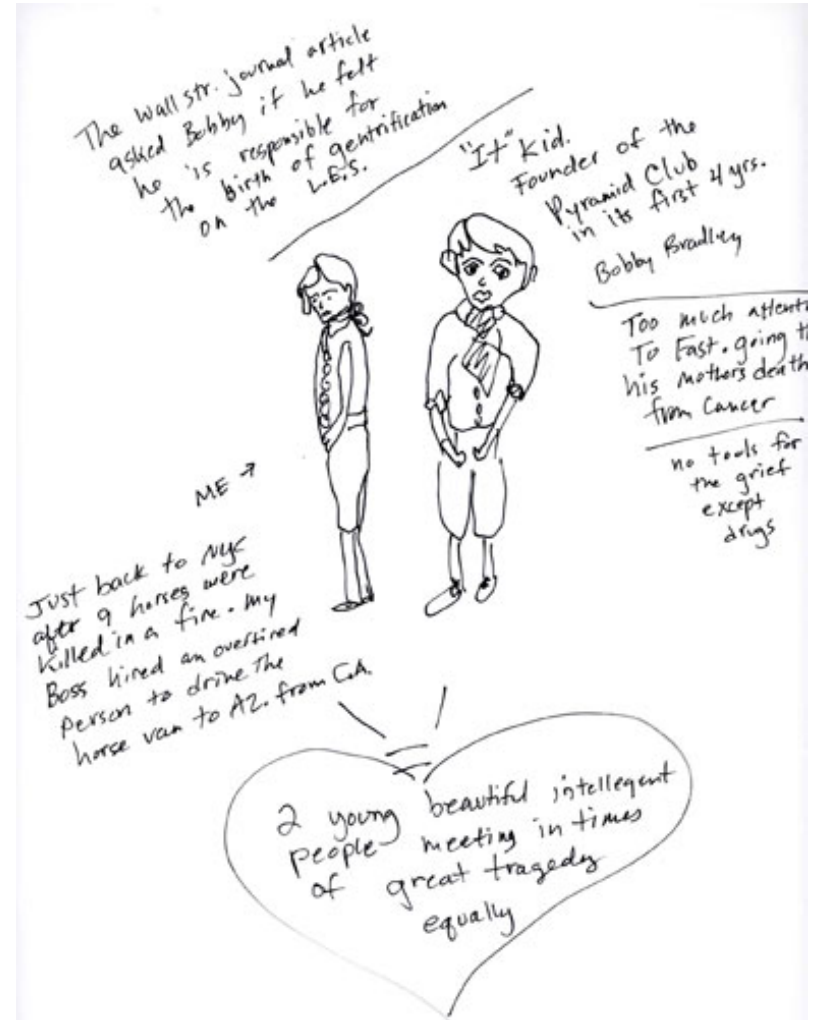 The Wall str. journal article
asked Bobby if he felt
he is responsible for
the birth of gentrification
on the L.E.S.
"It" Kid.
Founder of the
Pyramid Club
in its first 4 yrs.
Bobby Bradley
Too much attent
To Fast. going th
his mothers death
from Cancer
no tools for
the grief
except
drugs
ME →
Just back to NYC
after 9 horses were
killed in a fire. My
Boss hired an overtired
person to drive The
horse van to AZ. from CA.
2 young beautiful intellegent
people meeting in times
of great tragedy
equally